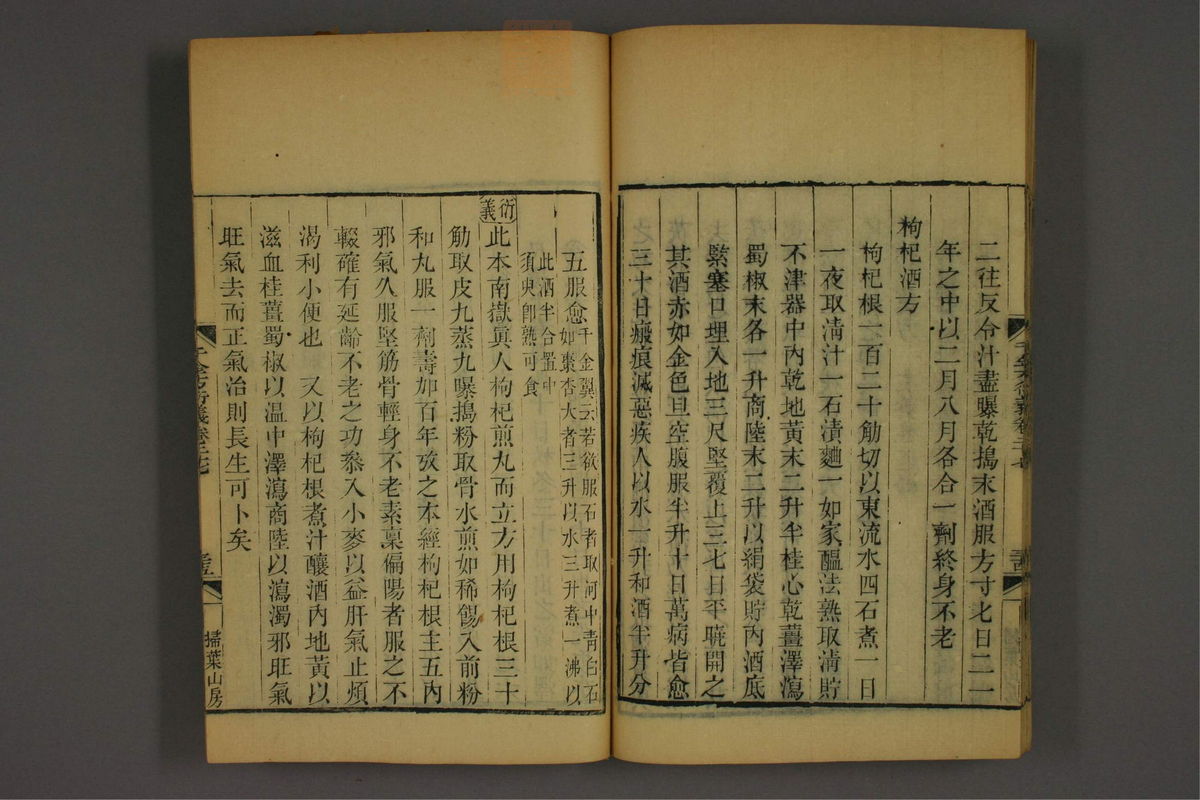 二往反令汁盡曝乾搗末酒服方寸匕日二一
年之中以二月八月各合一劑終身不老
枸杞酒方
枸杞根一百二十觔切以東流水四石煮一日
一夜取淸汁一石漬麯一如家醞法熟取淸貯
不津器中內乾地黃末二升半桂心乾薑澤瀉
蜀椒末各一升商陸末二升以絹袋貯內酒底
緊塞口埋入地三尺堅覆上三七日平曉開之
其酒赤如金色旦空腹服半升十日萬病皆愈
三十日瘢痕滅惡疾人以水一升和酒半升分
五服愈千金翼云若欲服石者取河中靑白石
如棗杏大者三升以水三升煮一沸以
此酒半合置中
須臾卽熟可食
衍義
此本南嶽眞人枸杞煎丸而立方用枸杞根三十
觔取皮九蒸九曝搗粉取骨水煎如稀餳入前粉
和丸服一劑壽如百年攷之本經枸杞根主五內
邪氣久服堅筋骨輕身不老素稟偏陽者服之不
輟確有延齡不老之功叅入小麥以益肝氣止煩
渴利小便也 又以枸杞根煮汁釀酒內地黃以
滋血桂薑蜀椒以温中澤瀉商陸以瀉濁邪旺氣
旺氣去而正氣治則長生可卜矣
掃葉山房